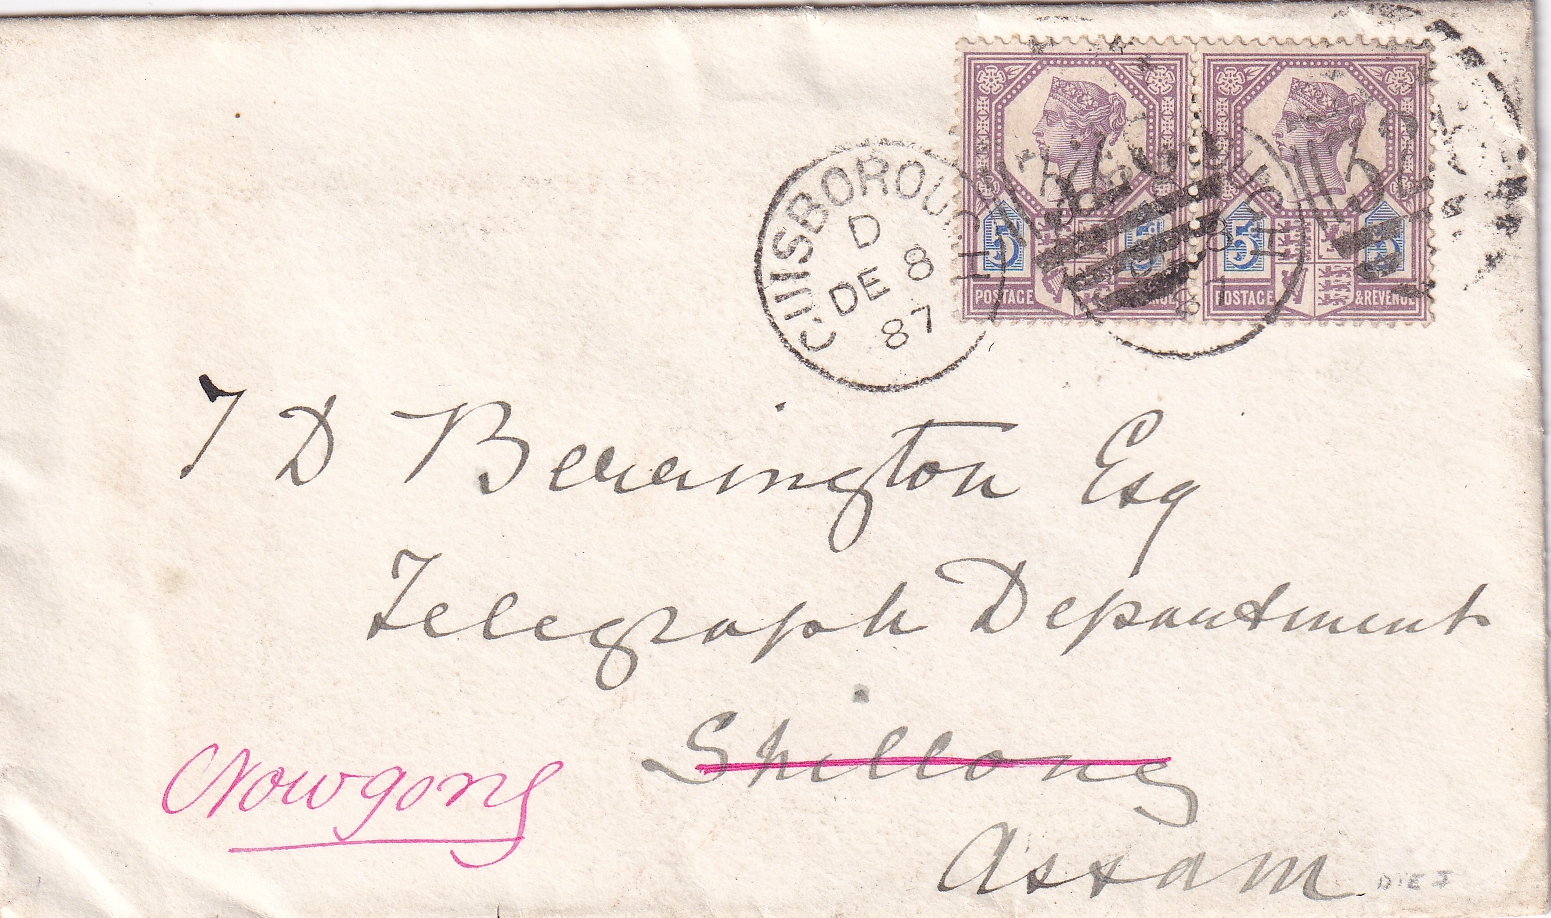 GUISBOROUGH
D
DE 8
87
5
POSTAGE
5 5
POSTAGE & REVENUE
T D Berrington Esq
Telegraph Department
Shillong
Nowgong
Assam
DIE I